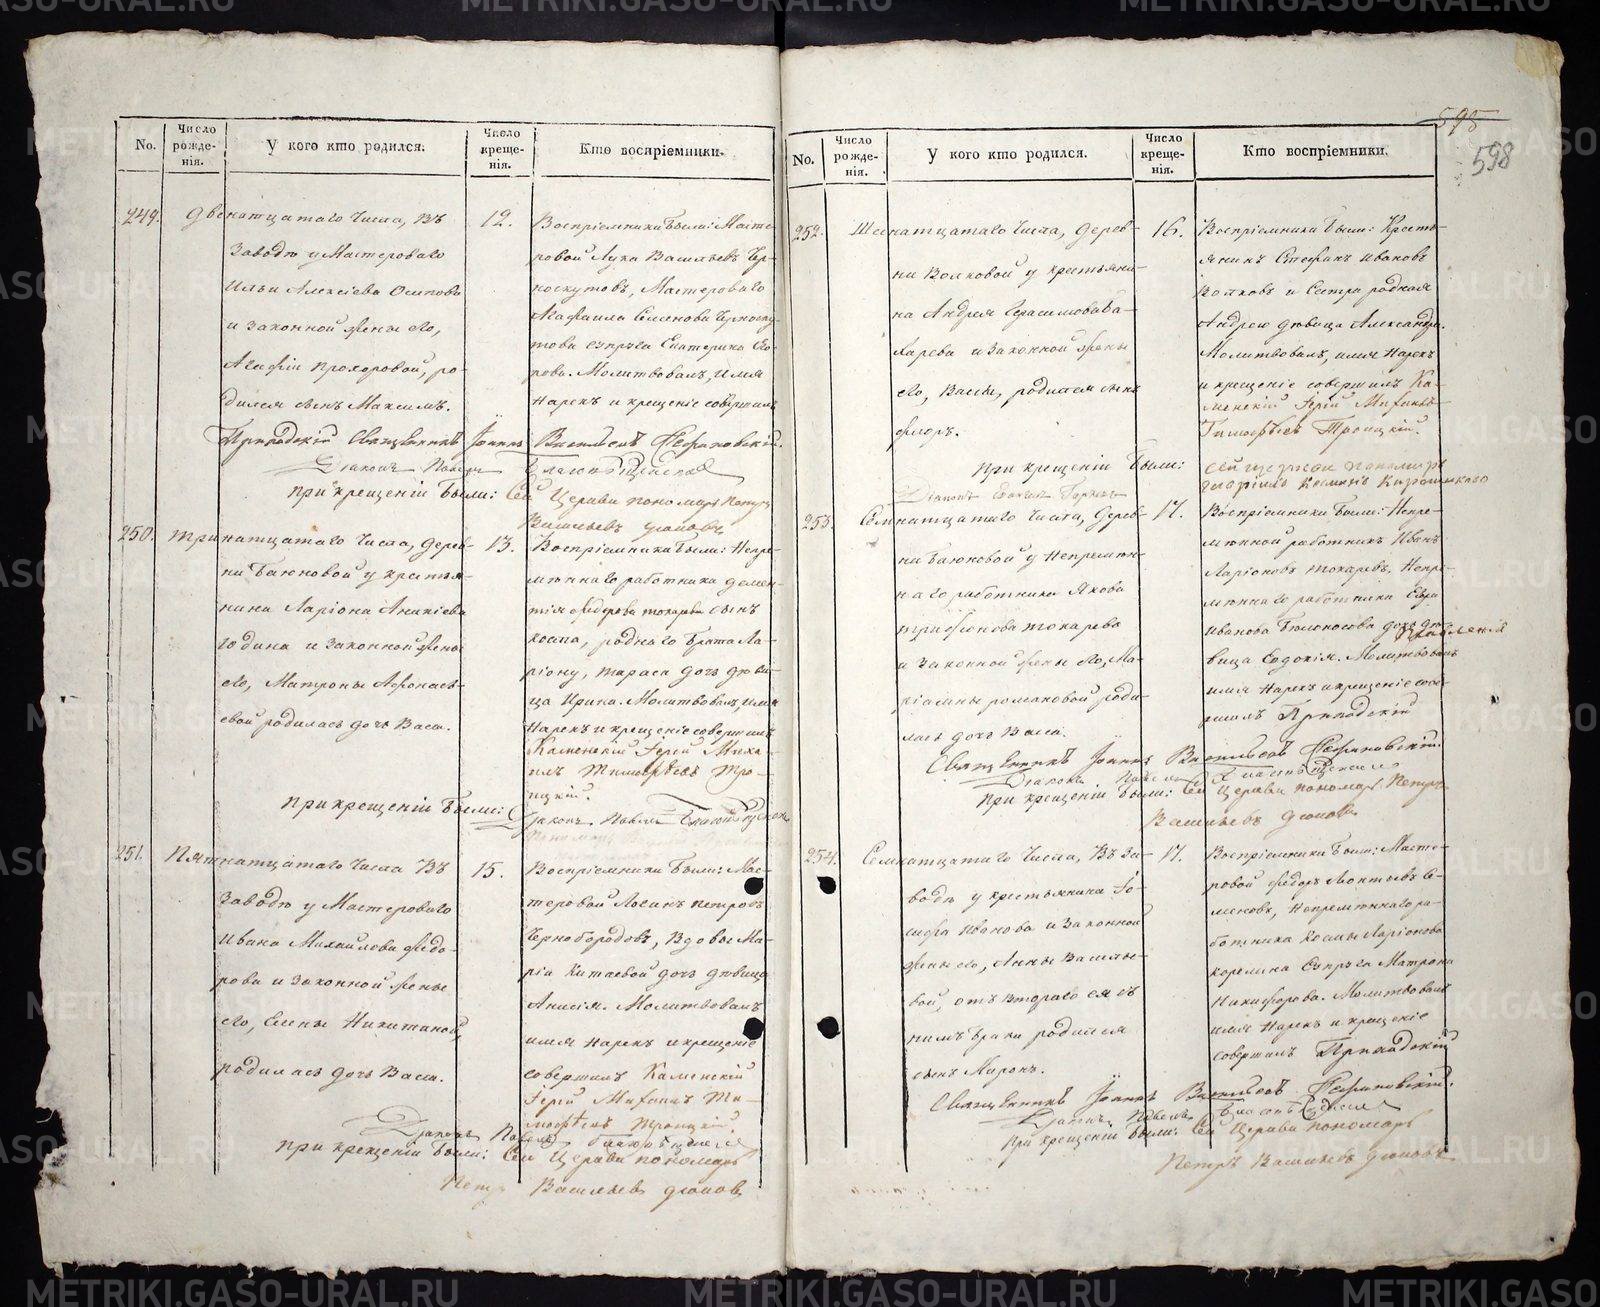 No.
Число рожде-нія.
У кого кто родился.
Число креще-нія.
Кто воспріемники.
249.
Двенатцатаго числа, въ
Заводѣ у Мастероваго
Ильи Алексіева Осипова
и законной жены его,
Агафіи Прохоровой, ро-
дился сынъ Максимъ.
12.
Воспріемники были: Масте-
ровой Лука Васильевъ Чер-
носкутовъ, Мастероваго
Семенова
супруга Екатерина Его-
рова. Молитвовалъ, имя
нарекъ и крещеніе совершилъ
Священникъ Іоаннъ Васильевъ
Діаконъ Павелъ
При крещеніи были: Сей Церкви пономарь Петръ
Васильевъ
250.
Тринатцатаго числа, дерев-
ни Баюновой у крестья-
нина Ларіона Ананіева
Година и законной жены
его, Матроны Афонась-
евой родилась дочь Васса.
13.
Воспріемники были: Непре-
мѣннаго работника Демен-
тія Федорова Токарева сынъ
Косма, роднаго брата Ла-
ріону, Тараса дочь дѣви-
ца Ирина. Молитвовалъ, имя
нарекъ и крещеніе совершилъ
Каменскій Іерей Миха-
илъ Тимофѣевъ Тро-
ицкій.
При крещеніи были:
Діаконъ Павелъ
251.
Пятнатцатаго числа въ
Заводѣ у Мастероваго
Ивана Михайлова Федо-
рова и законной жены
его, Елены Никитиной,
родилась дочь Васса.
15.
Воспріемники были: Мас-
теровой Логинъ Петровъ
Чернобородовъ, вдовы Ма-
ріи Китаевой дочь дѣвица
Анисія. Молитвовалъ
имя нарекъ и крещеніе
совершилъ Каменскій
Іерей Михаилъ Ти-
мофѣевъ Троицкій.
Діаконъ Павелъ
При крещеніи были: Сей Церкви пономарь
Петръ Васильевъ
595
598
No.
Число рожде-нія.
У кого кто родился.
Число креще-нія.
Кто воспріемники.
252.
Шеснатцатаго числа, дерев-
ни Волковой у крестьяни-
на Андрея Герасимова
и законной жены
его, Вассы, родился сынъ
Флоръ.
16.
Воспріемники были: Кресть-
янинъ Стефанъ Ивановъ
Волковъ и сестра родная
Андрею дѣвица Александра.
Молитвовалъ, имя нарекъ
и крещеніе совершилъ Ка-
менскій Іерей Михаилъ
Тимофѣевъ Троицкій.
При крещеніи были:
253.
Семнатцатаго числа, дерев-
ни Баюновой у непремѣн-
наго работника Якова
Трифонова Токарева
и законной жены его, Ма-
ріамны Романовой роди-
лась дочь Васса.
17.
Воспріемники были: Непре-
мѣнной работникъ Иванъ
Ларіоновъ Токаревъ, Непре-
мѣннаго работника
Иванова Бѣлоносова дочь дѣ-
вица Евдокія. Молитвовалъ
имя нарекъ и крещеніе сове-
ршилъ
Священникъ Іоаннъ Васильевъ
Діаконъ Павелъ
При крещеніи были: Сей Церкви пономарь Петръ
Васильевъ
254.
Семнатцатаго числа, въ За-
водѣ у крестьянина Іо-
сифа Иванова и законной
жены его, Анны Василье-
вой, отъ втораго ея съ
нимъ брака родился
сынъ Миронъ.
17.
Воспріемники были: Масте-
ровой Федоръ Леонтьевъ Се-
меновъ, Непремѣннаго ра-
ботника Космы Ларіонова
Корелина супруга Матрона
Никифорова. Молитвовалъ
имя нарекъ и крещеніе
совершилъ
Священникъ Іоаннъ Васильевъ
Діаконъ Павелъ
При крещеніи были: Сей Церкви пономарь
Петръ Васильевъ
METRIKI.GASO-URAL.RU